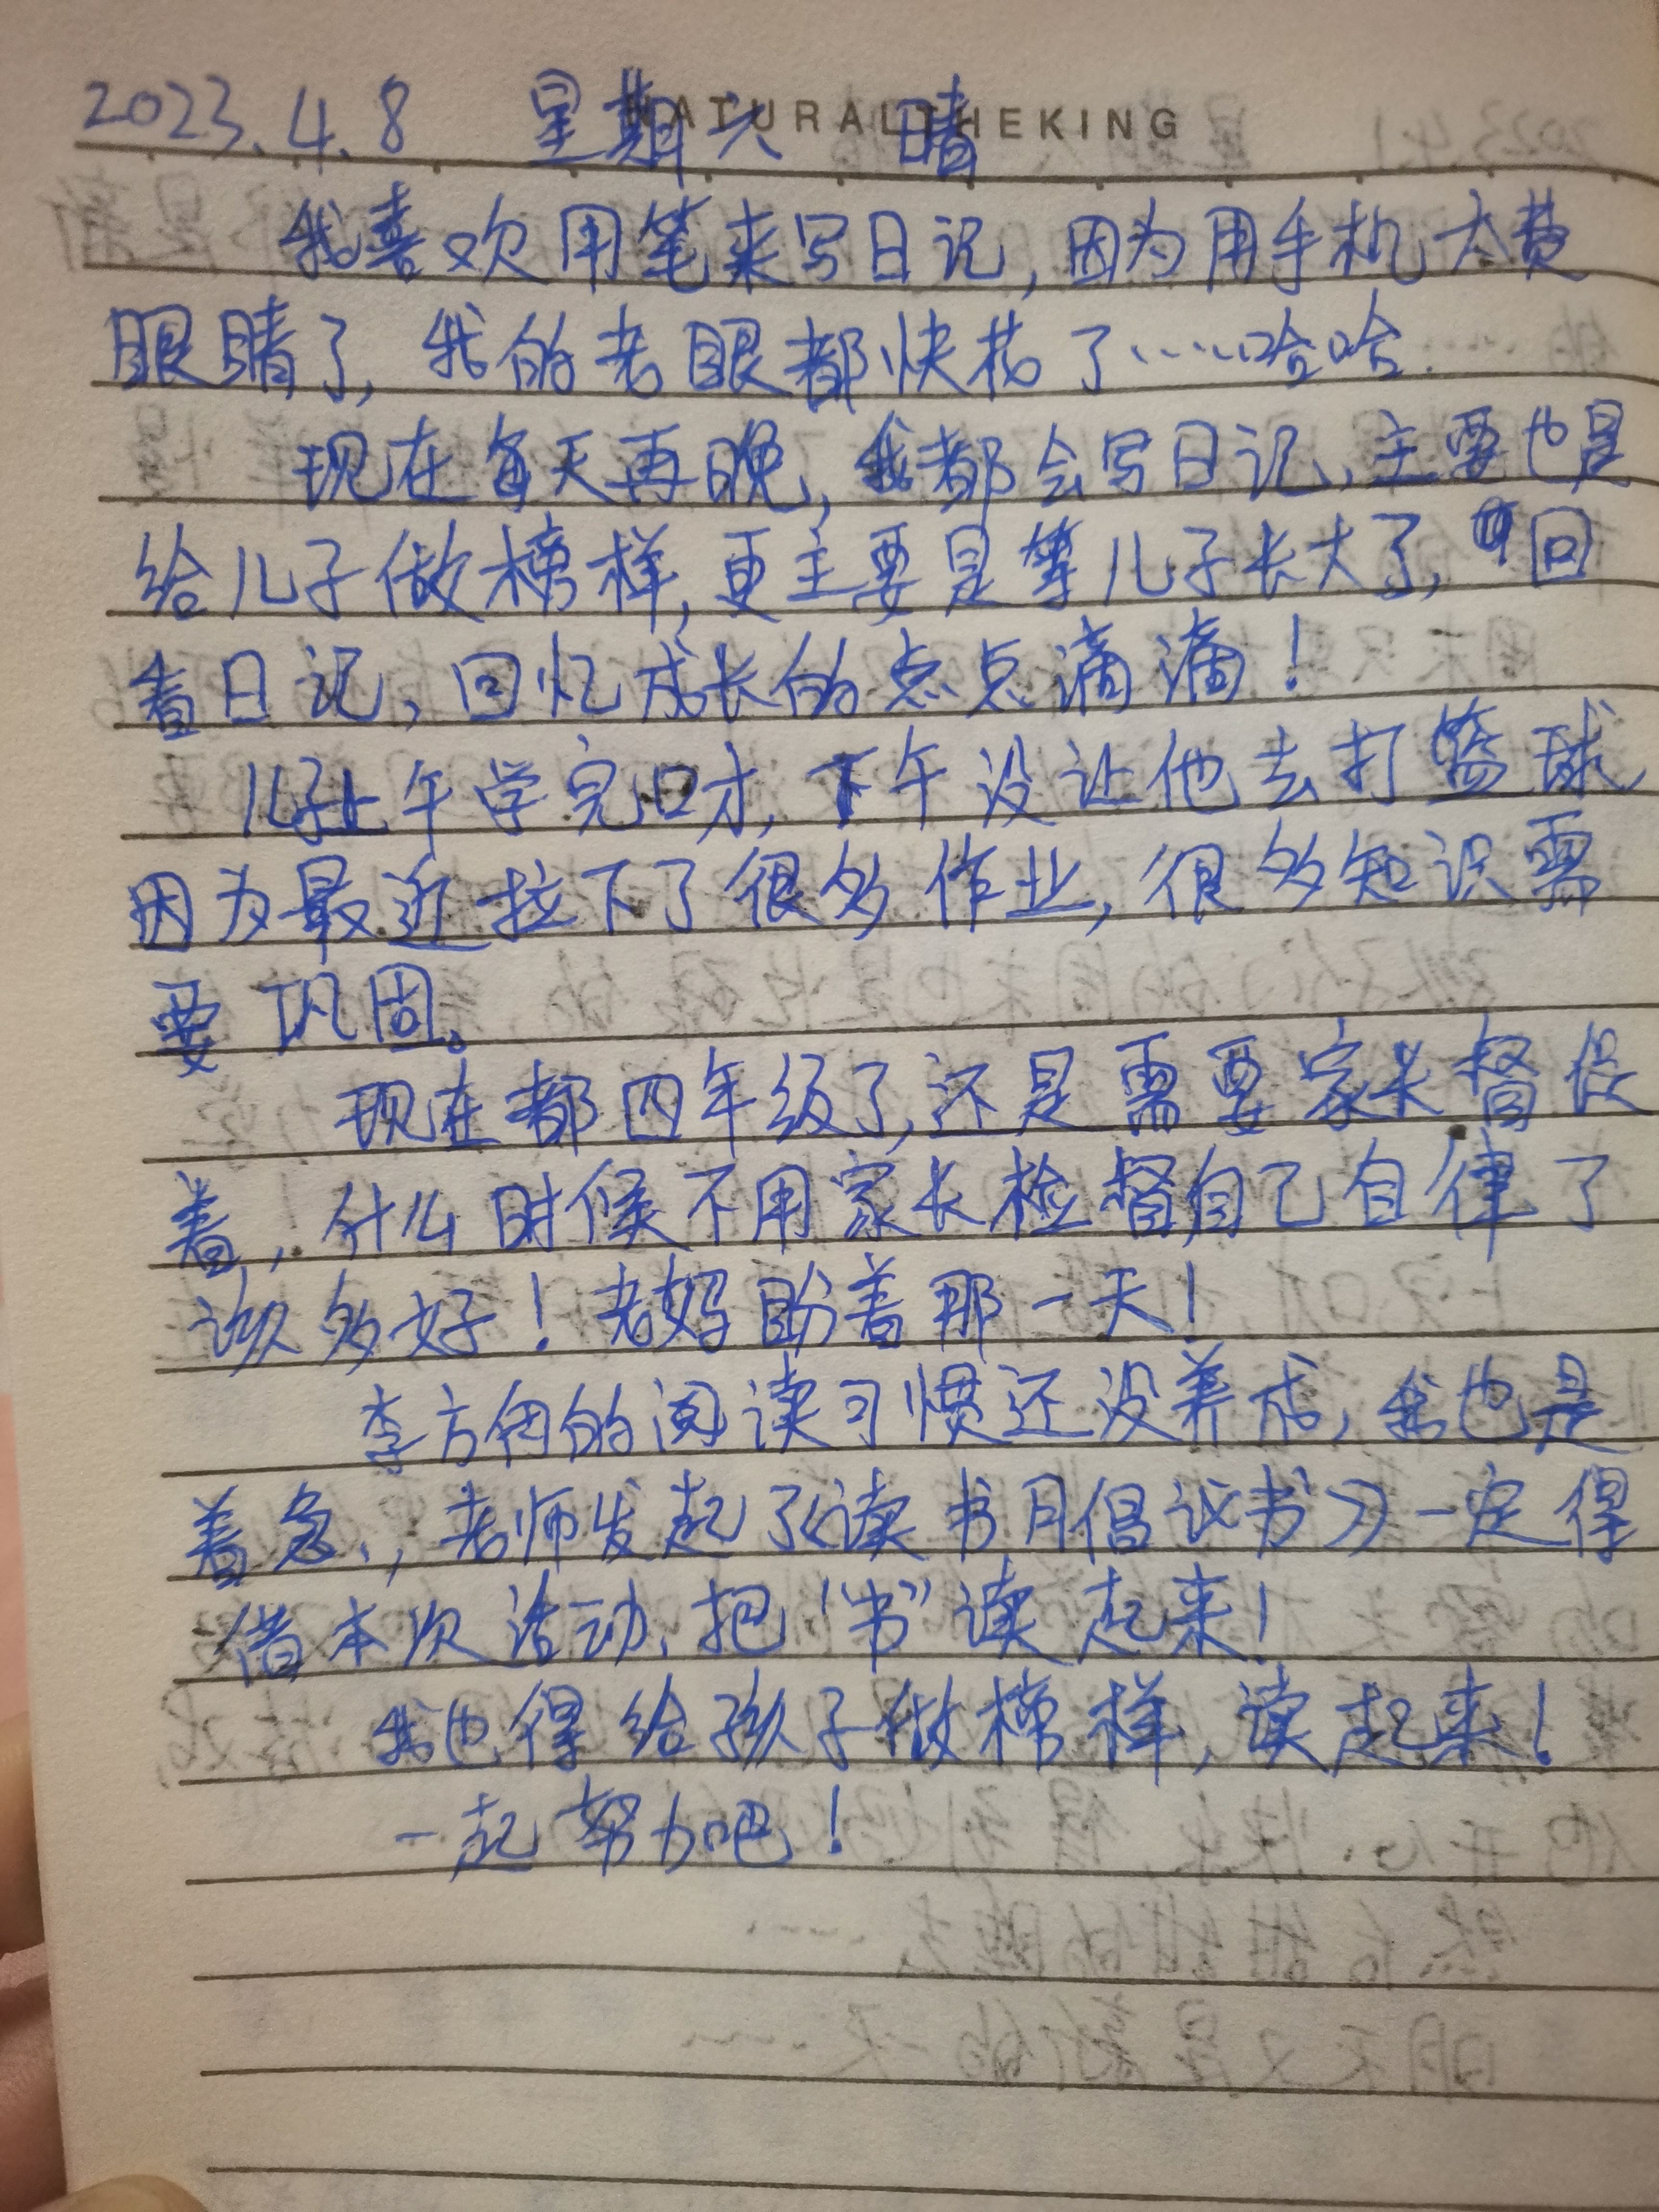 NATURALTHEKING
2023.4.8 星期六 晴
我喜欢用笔来写日记,因为用手机太费
眼睛了,我的老眼都快花了……哈哈
现在每天再晚,我都会写日记,主要也是
给儿子做榜样,更主要是等儿子长大了,回
看日记,回忆成长的点点滴滴!
儿子上午学完口才,下午没让他去打篮球,
因为最近拉下了很多作业,很多知识需
要巩固。
现在都四年级了,还是需要家长督促
着,什么时候不用家长检督自己自律了
该多好!老妈盼着那一天!
李方的阅读习惯还没养成,我也是
着急,,老师发起了《读书月倡议书》一定得
借本次活动,把“书”读起来!
我也得给孩子做榜样,读起来!
一起努力吧!